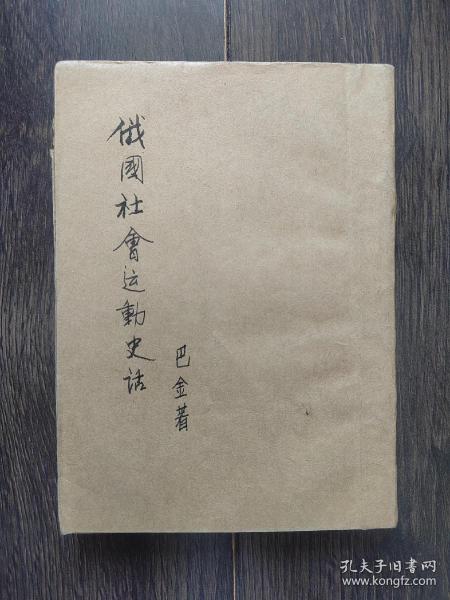 俄國社會运動史话
巴金著
孔夫子旧书网
www.kongfz.com